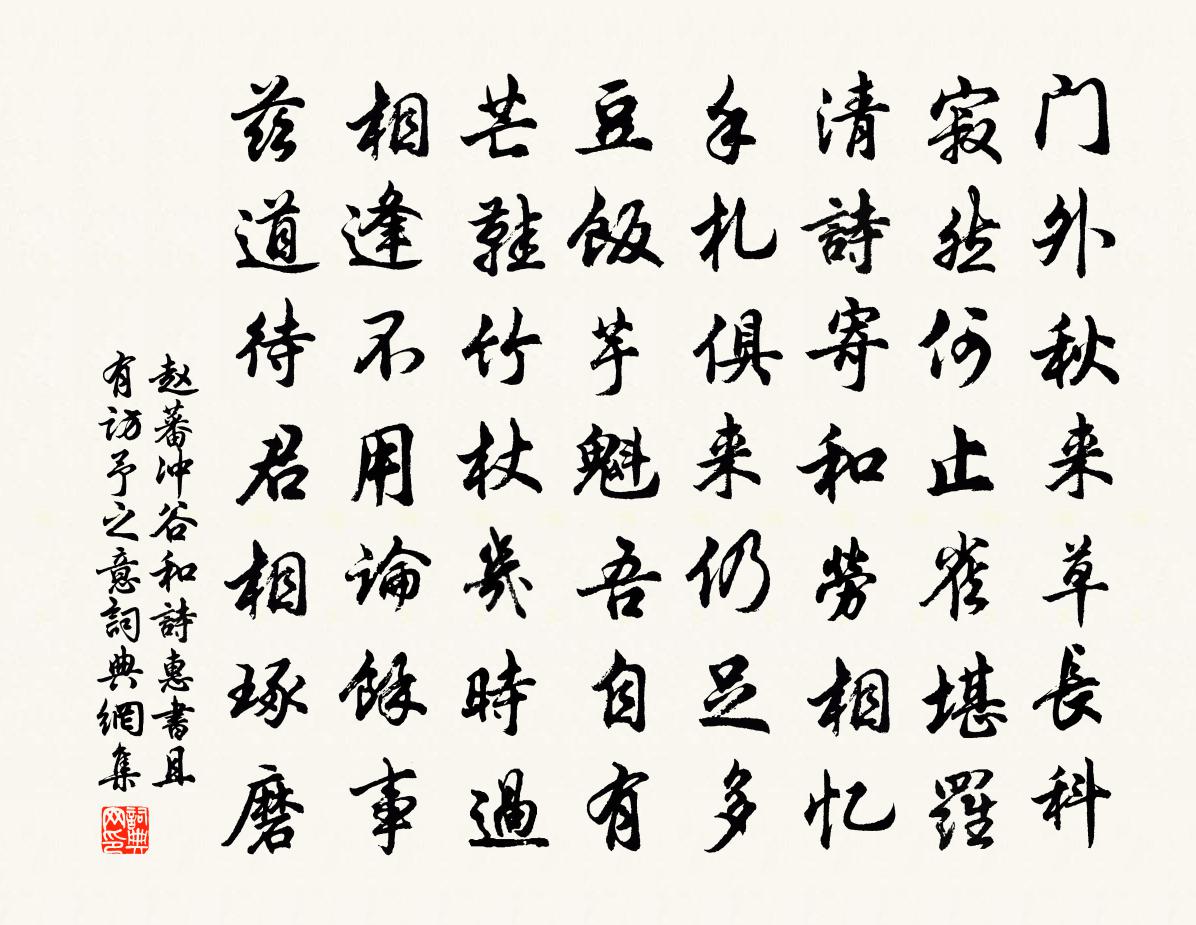 门外秋来草長科
寂然何止雀堪羅
清詩寄和勞相忆
手札俱来仍足多
豆飯芋魁吾自有
芒鞋竹杖幾時過
相逢不用論餘事
兹道待君相琢磨
赵蕃冲谷和詩惠書且
有访予之意詞典網集
詞典
网印